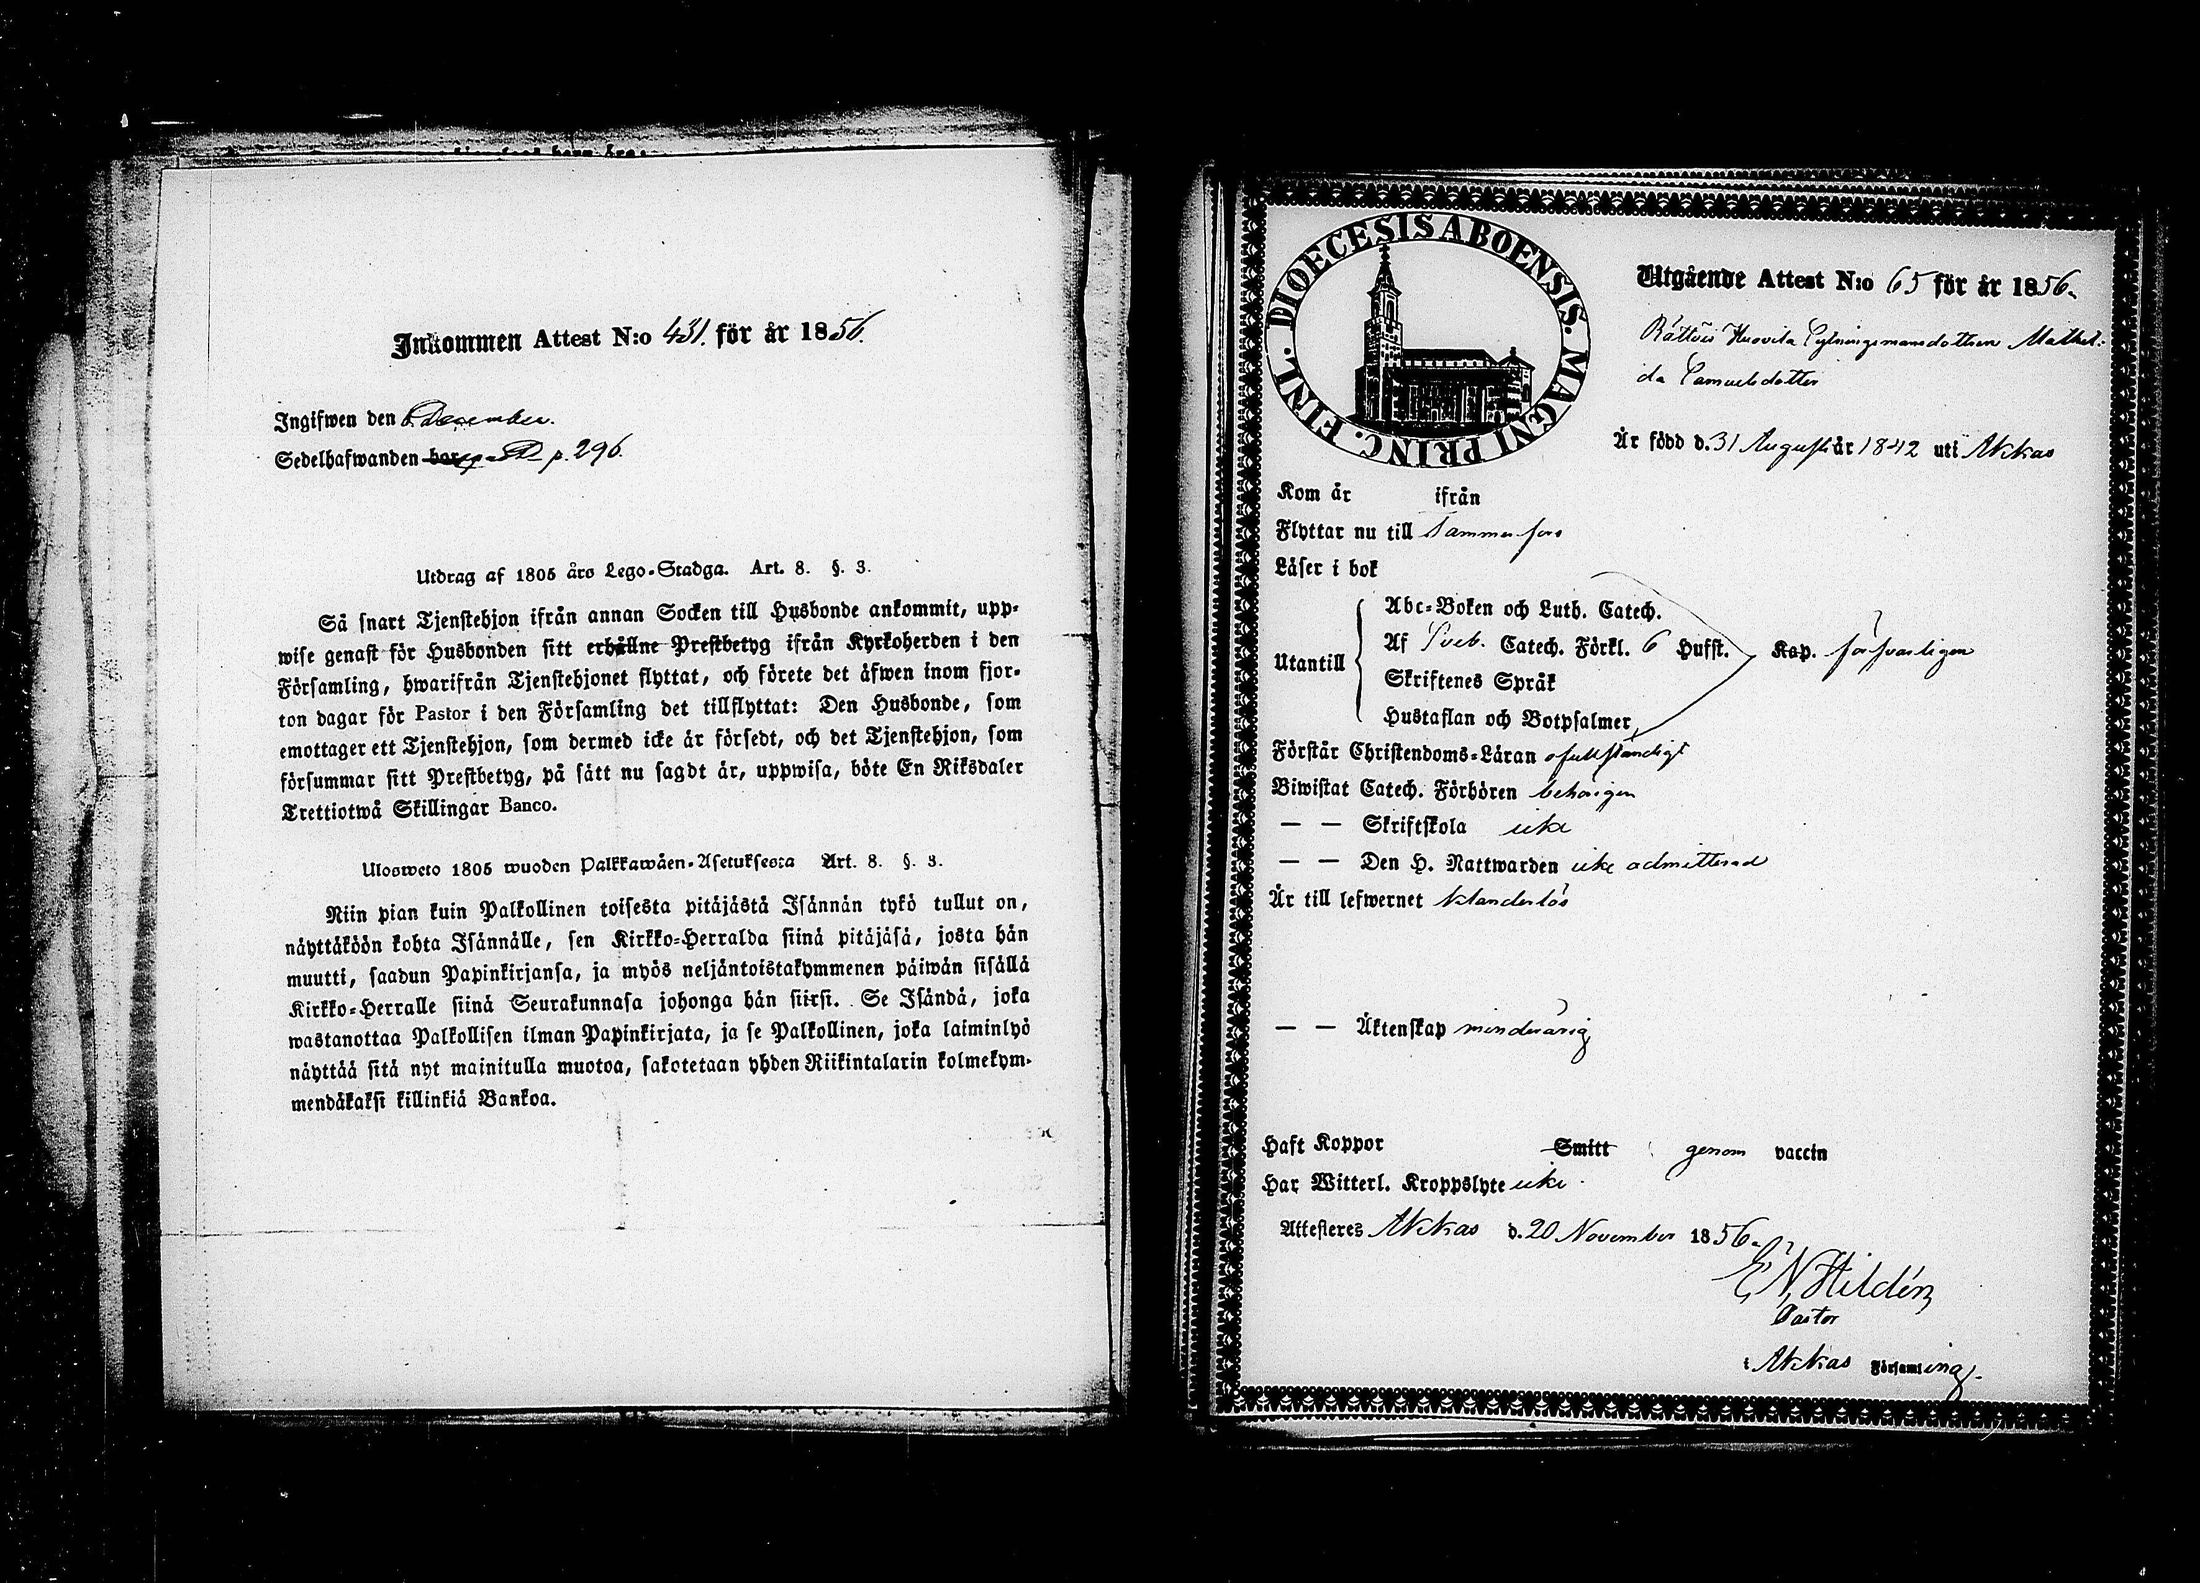 Inkommen Attest N:o 431. för år 1856.
Ingifwen den 6 December.
Sedelhafwanden p. 296.
Utdrag af 1805 års Lego-Stadga. Art. 8. §. 3.
Så snart Tjenstehjon ifrån annan Socken till Husbonde ankommit, upp-
wise genast för Husbonden sitt erhållne Prestbetyg ifrån Kyrkoherden i den
Församling, hwarifrån Tjenstehjonet flyttat, och förete det äfwen inom fjor-
ton dagar för Pastor i den Församling det tillflyttat: Den Husbonde, som
emottager ett Tjenstehjon, som dermed icke är försedt, och det Tjenstehjon, som
försummar sitt Prestbetyg, på sätt nu sagdt är, uppwisa, böte En Riksdaler
Trettiotwå Skillingar Banco.
Ulosweto 1805 wuoden Palkkawäen-Asetuksesta Art. 8. §. 3.
Niin pian kuin Palkollinen toisesta pitäjästä Isännän tykö tullut on,
näyttäköön kohta Isännälle, sen Kirkko-Herralda siinä pitäjäsä, josta hän
muutti, saadun Papinkirjansa, ja myös neljäntoistakymmenen päiwän sisällä
Kirkko-Herralle siinä Seurakunnasa johonga hän siirsi. Se Isändä, joka
wastanottaa Palkollisen ilman Papinkirjata, ja se Palkollinen, joka laiminlyö
näyttää sitä nyt mainitulla muotoa, sakotetaan yhden Riikintalarin kolmekym-
mendäkaksi killinkiä Bankoa.
FINL. DIOECESIS ABOENSIS. MAGNI PRINC.
Utgående Attest N:o 65 för år 1856.
Rättöis Huovila Mathil-
da Samuelsdotter
Är född d. 31 Augusti år 1842 uti Akkas
Kom år ifrån
Flyttar nu till Tammerfors
Läser i bok
Utantill
Abc-Boken och Luth. Catech.
Af Sveb. Catech. Förkl. 6 Hufst. Kap. försvarligen
Skriftenes Språk
Hustaflan och Botpsalmer,
Förstår Christendoms-Läran ofullständigt
Biwistat Catech. Förhören behörigen
— — Skriftskola icke
— — Den H. Nattwarden icke admitterad
Är till lefwernet klanderlös
— — Äktenskap minderårig
Haft Koppor Smitt genom vaccin
Har Witterl. Kroppslyte icke.
Attesteres Akkas d. 20 November 1856.
E, N, Hildén
Pastor
i Akkas Församling.